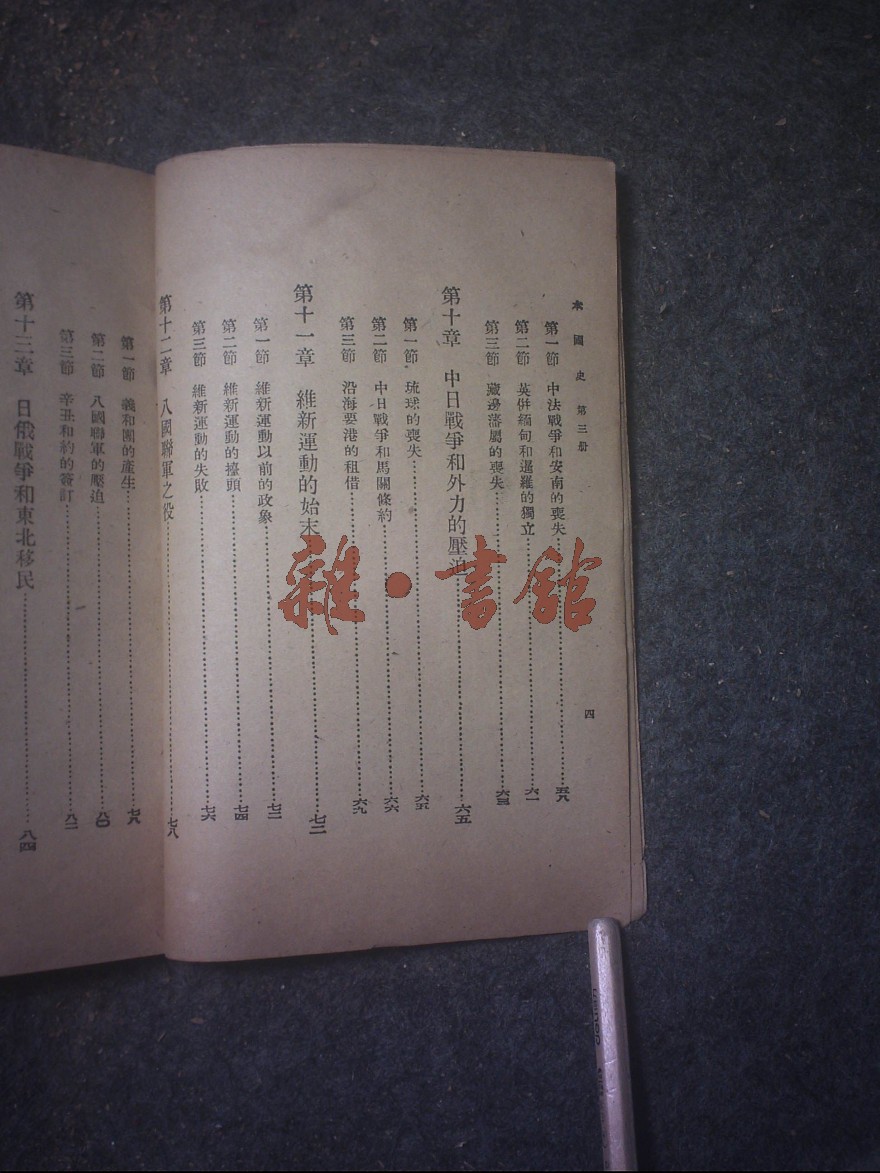 本國史 第三册
四
第一節 中法戰爭和安南的喪失……五八
第二節 英併緬甸和暹羅的獨立……六一
第三節 藏邊藩屬的喪失……六三
第十章 中日戰爭和外力的壓迫……六五
第一節 琉球的喪失……六五
第二節 中日戰爭和馬關條約……六六
第三節 沿海要港的租借……六九
第十一章 維新運動的始末……七二
第一節 維新運動以前的政象……七二
第二節 維新運動的擡頭……七四
第三節 維新運動的失敗……七六
第十二章 八國聯軍之役……七八
第一節 義和團的產生……七八
第二節 八國聯軍的壓迫……八〇
第三節 辛丑和約的簽訂……八二
第十三章 日俄戰爭和東北移民……八四
雜·書館